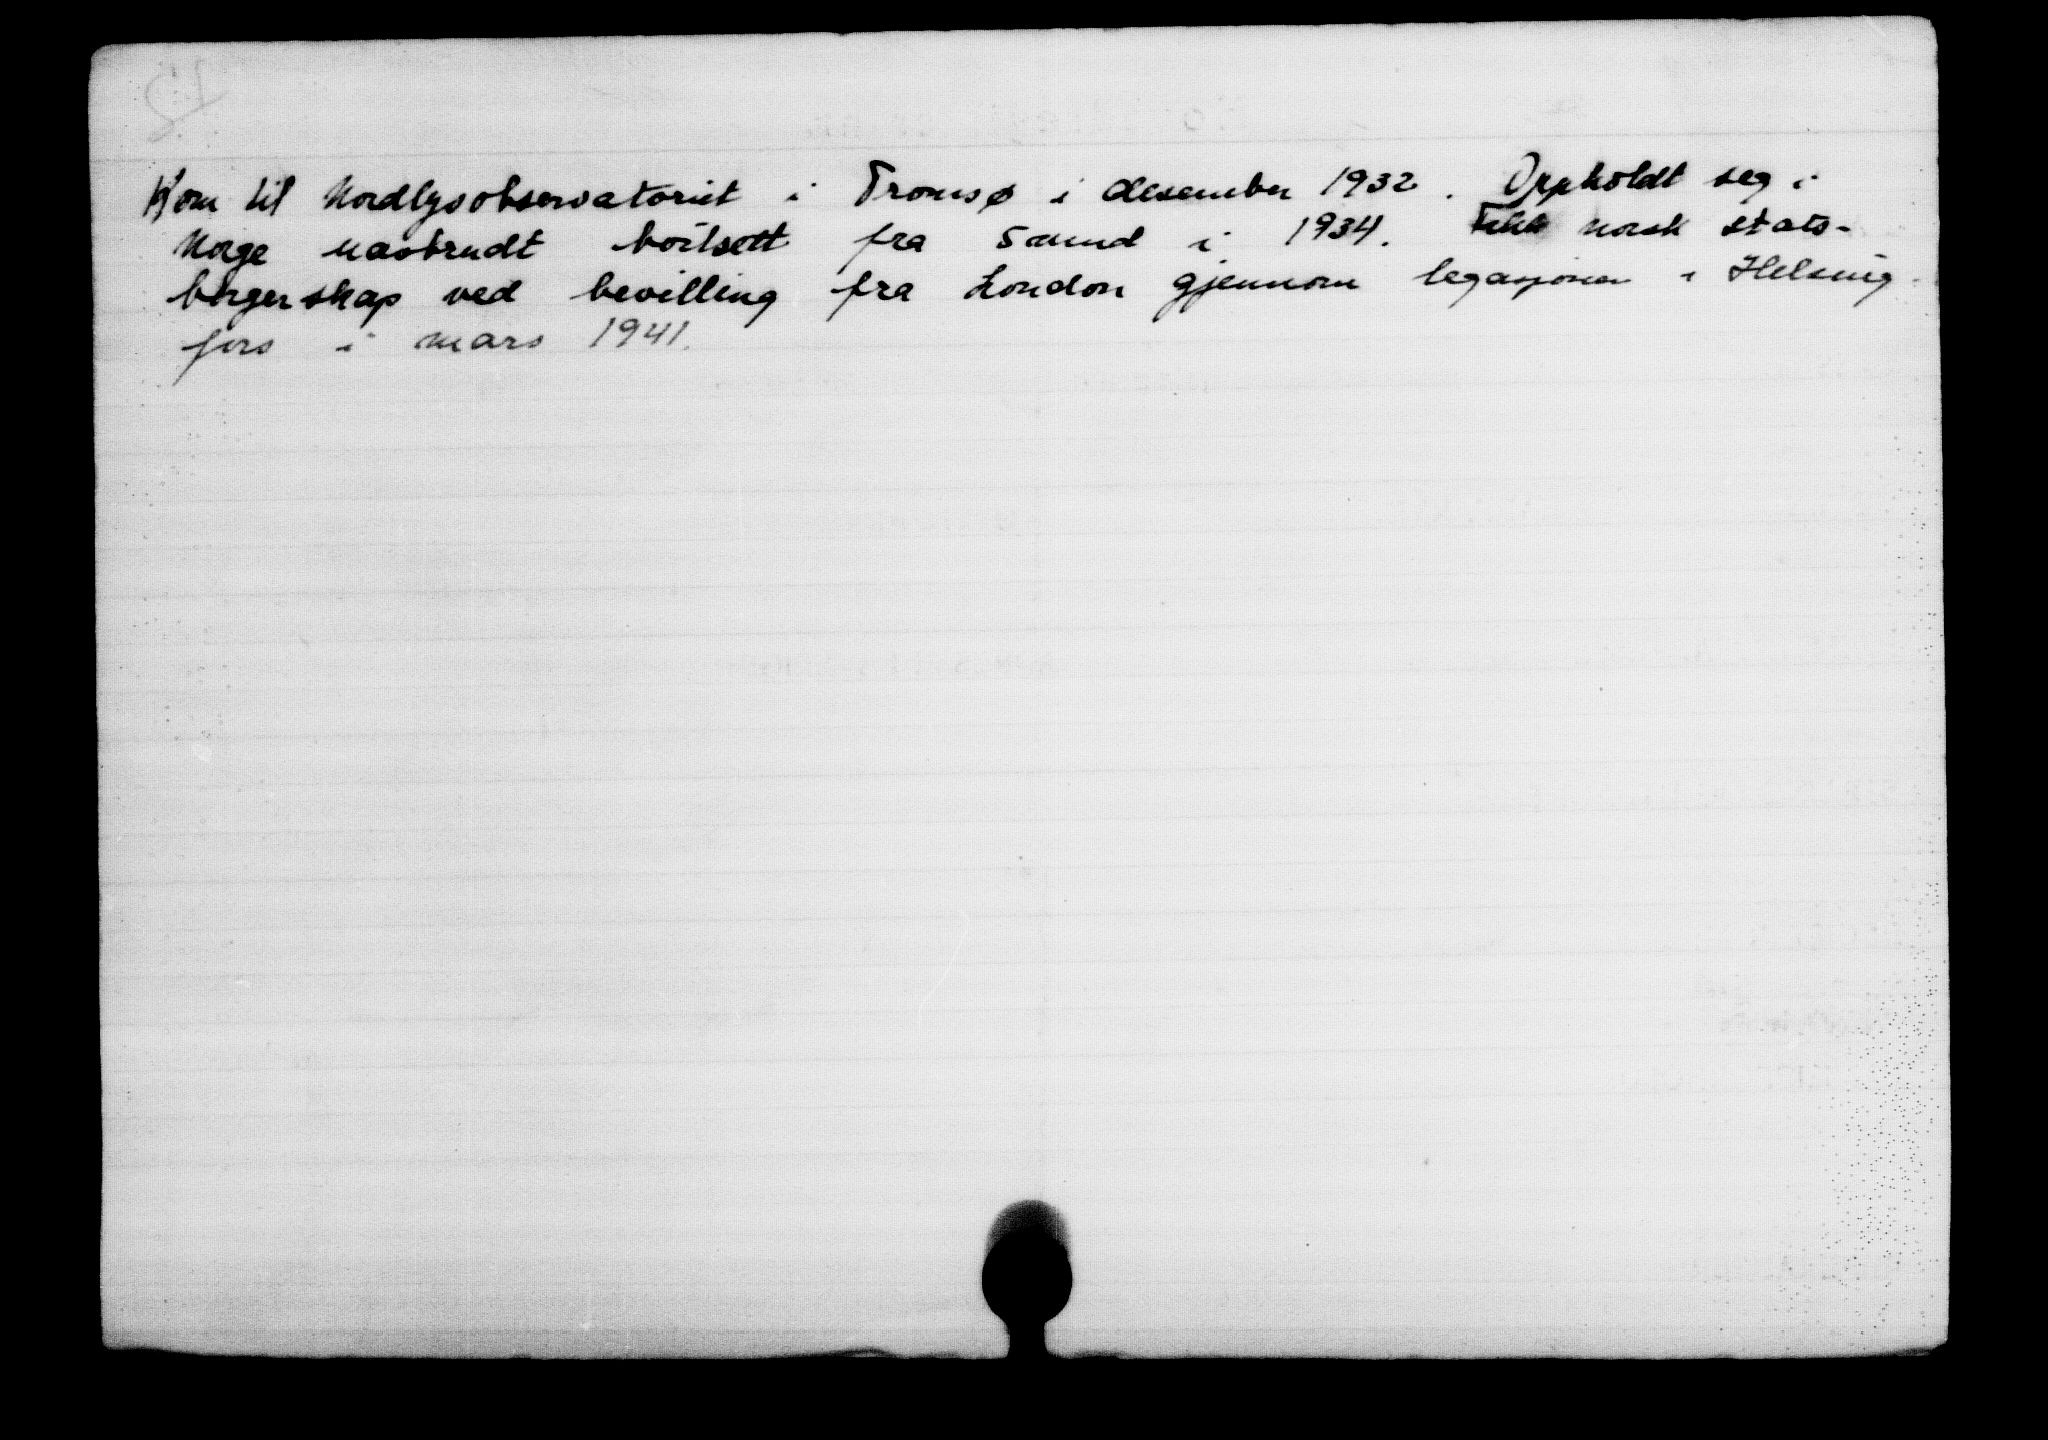 Kom til Nordlysobservatoriet i Tromsø i desember 1932. Oppholdt seg i
Norge uavbrudt bortsett fra 5 mnd i 1934. Fikk norsk stats-
borgerskap ved bevilling fra London gjennom legasjonen i Helsing-
fors i mars 1941.